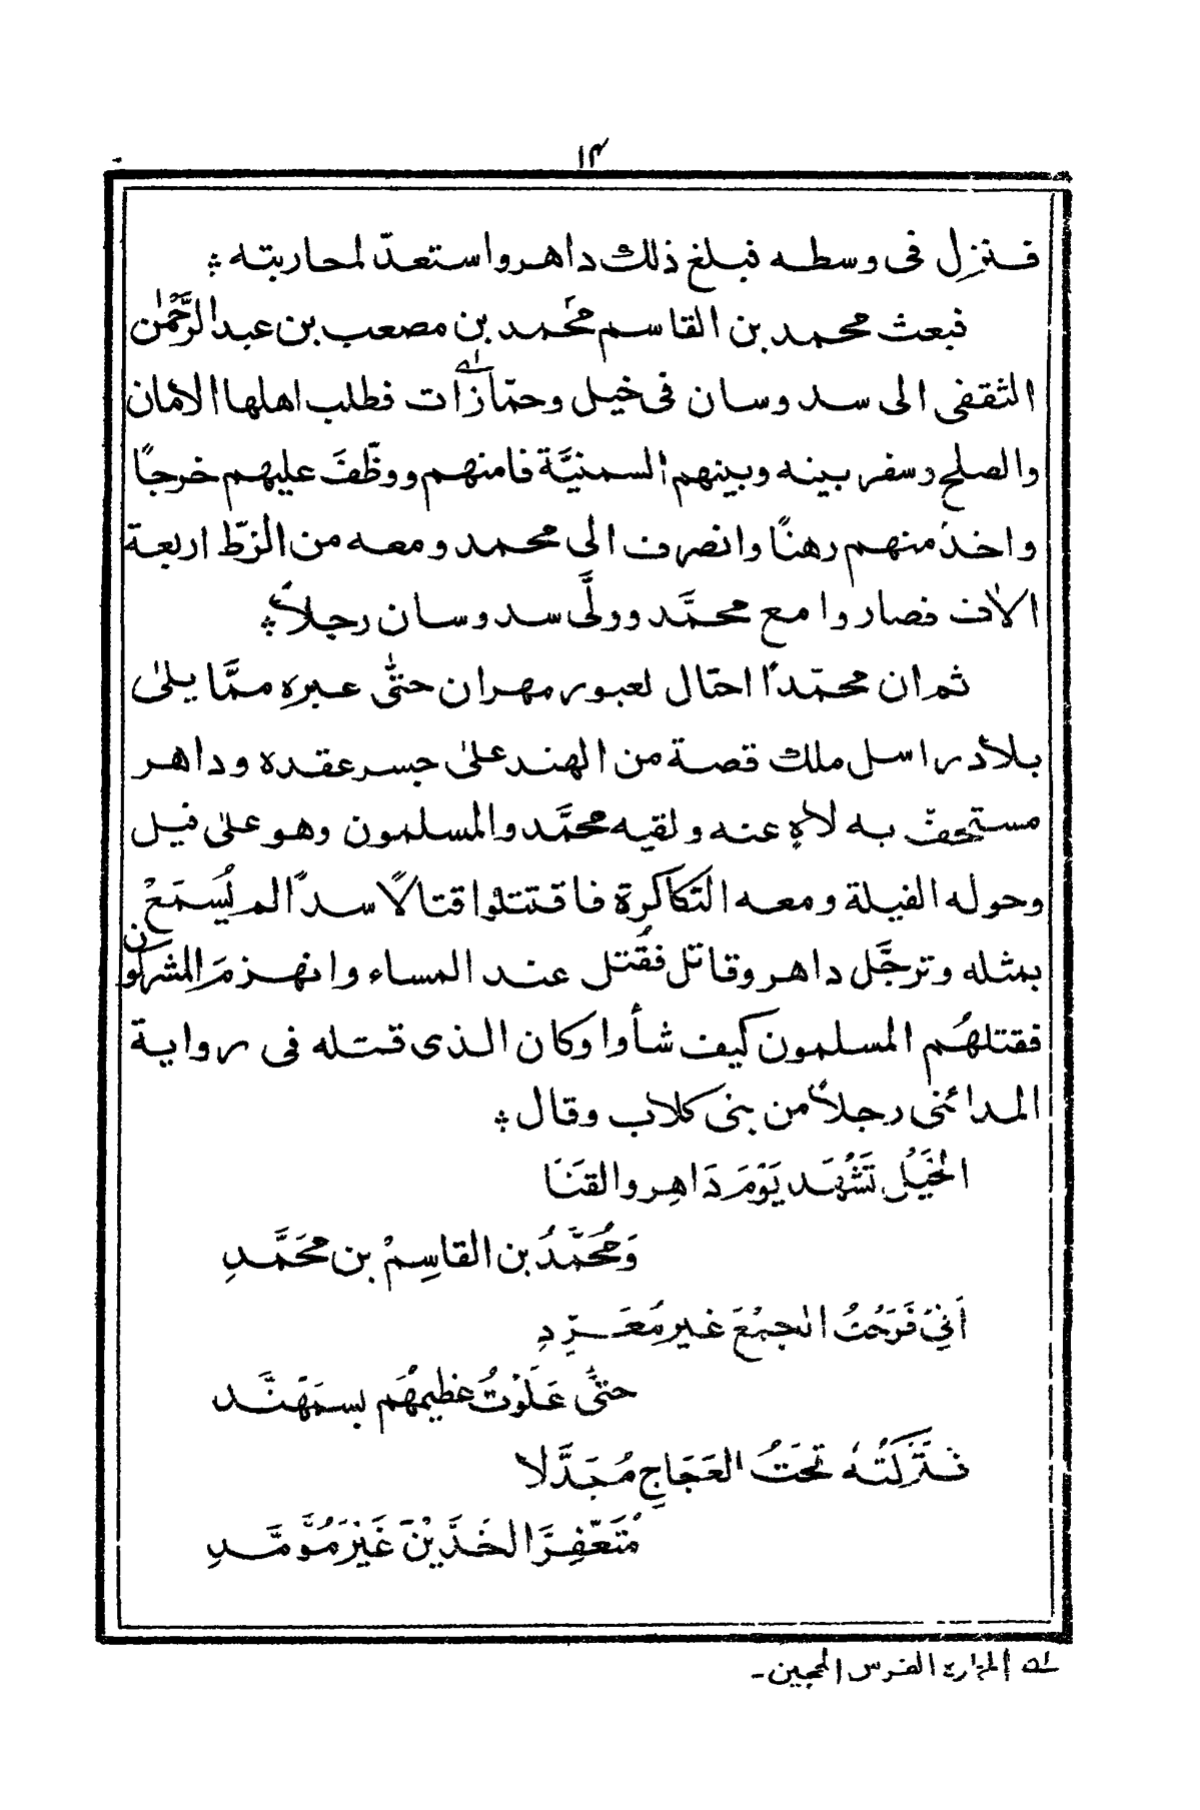 ۱۴
فنزل فی وسطه فبلغ ذلك داهر واستعدّ لمحاربته
فبعث محمد بن القاسم محَمد بن مصعب بن عبد الرَّحمٰن
الثقفی الی سدوسان فی خیل وحمّازات فطلب اهلها الامان
والصلح وسفر بینه وبینهم السمنیَّة فامنهم ووظّفَ علیهم خرجًا
واخذ منهم رهنًا وانصرف الی محمد ومعه من الزطّ اربعة
الاف فصاروا مع محمَّد وولَّی سدوسان رجلاً
ثم ان محمّدًا احتال لعبور مهران حتّٰی عبره ممَّا یلیٰ
بلاد راسل ملك قصة من الهند علیٰ جسر عقده وداهر
مستخفّ به لاهٍ عنه ولقیه محمَّد والمسلمون وهو علیٰ فیل
وحوله الفیلة ومعه التكاكرة فاقتتلوا قتالًا سدًا لم یُسمَعْ
بمثله وترجَّل داهر وقاتل فقُتل عند المساء وانهزمَ المشركون
فقتلهُم المسلمون كیف شأوا وكان الذی قتله فی روایة
المدائنی رجلاً من بنی كلاب وقال
الخَیْلُ تَشْهَد یَوْمَ دَاهِر والقَنَا
وَمُحَمَّدُ بن القاسِمْ بن محَمَّدِ
اَنِّیْ فَرَجْتُ الجمْعَ غیر مُعَرِّدِ
حتّٰی عَلَوْتُ عظیمهُم بسمَهْنَّد
فَتَرَكْتُهٗ تحْتَ العَجَاجِ مُجَدَّلا
مُتَعَفِّرَ الخَدَّیْنِ غَیْرَ مُوَّسَّدِ
لے الجمازة الفرس الهجین۔